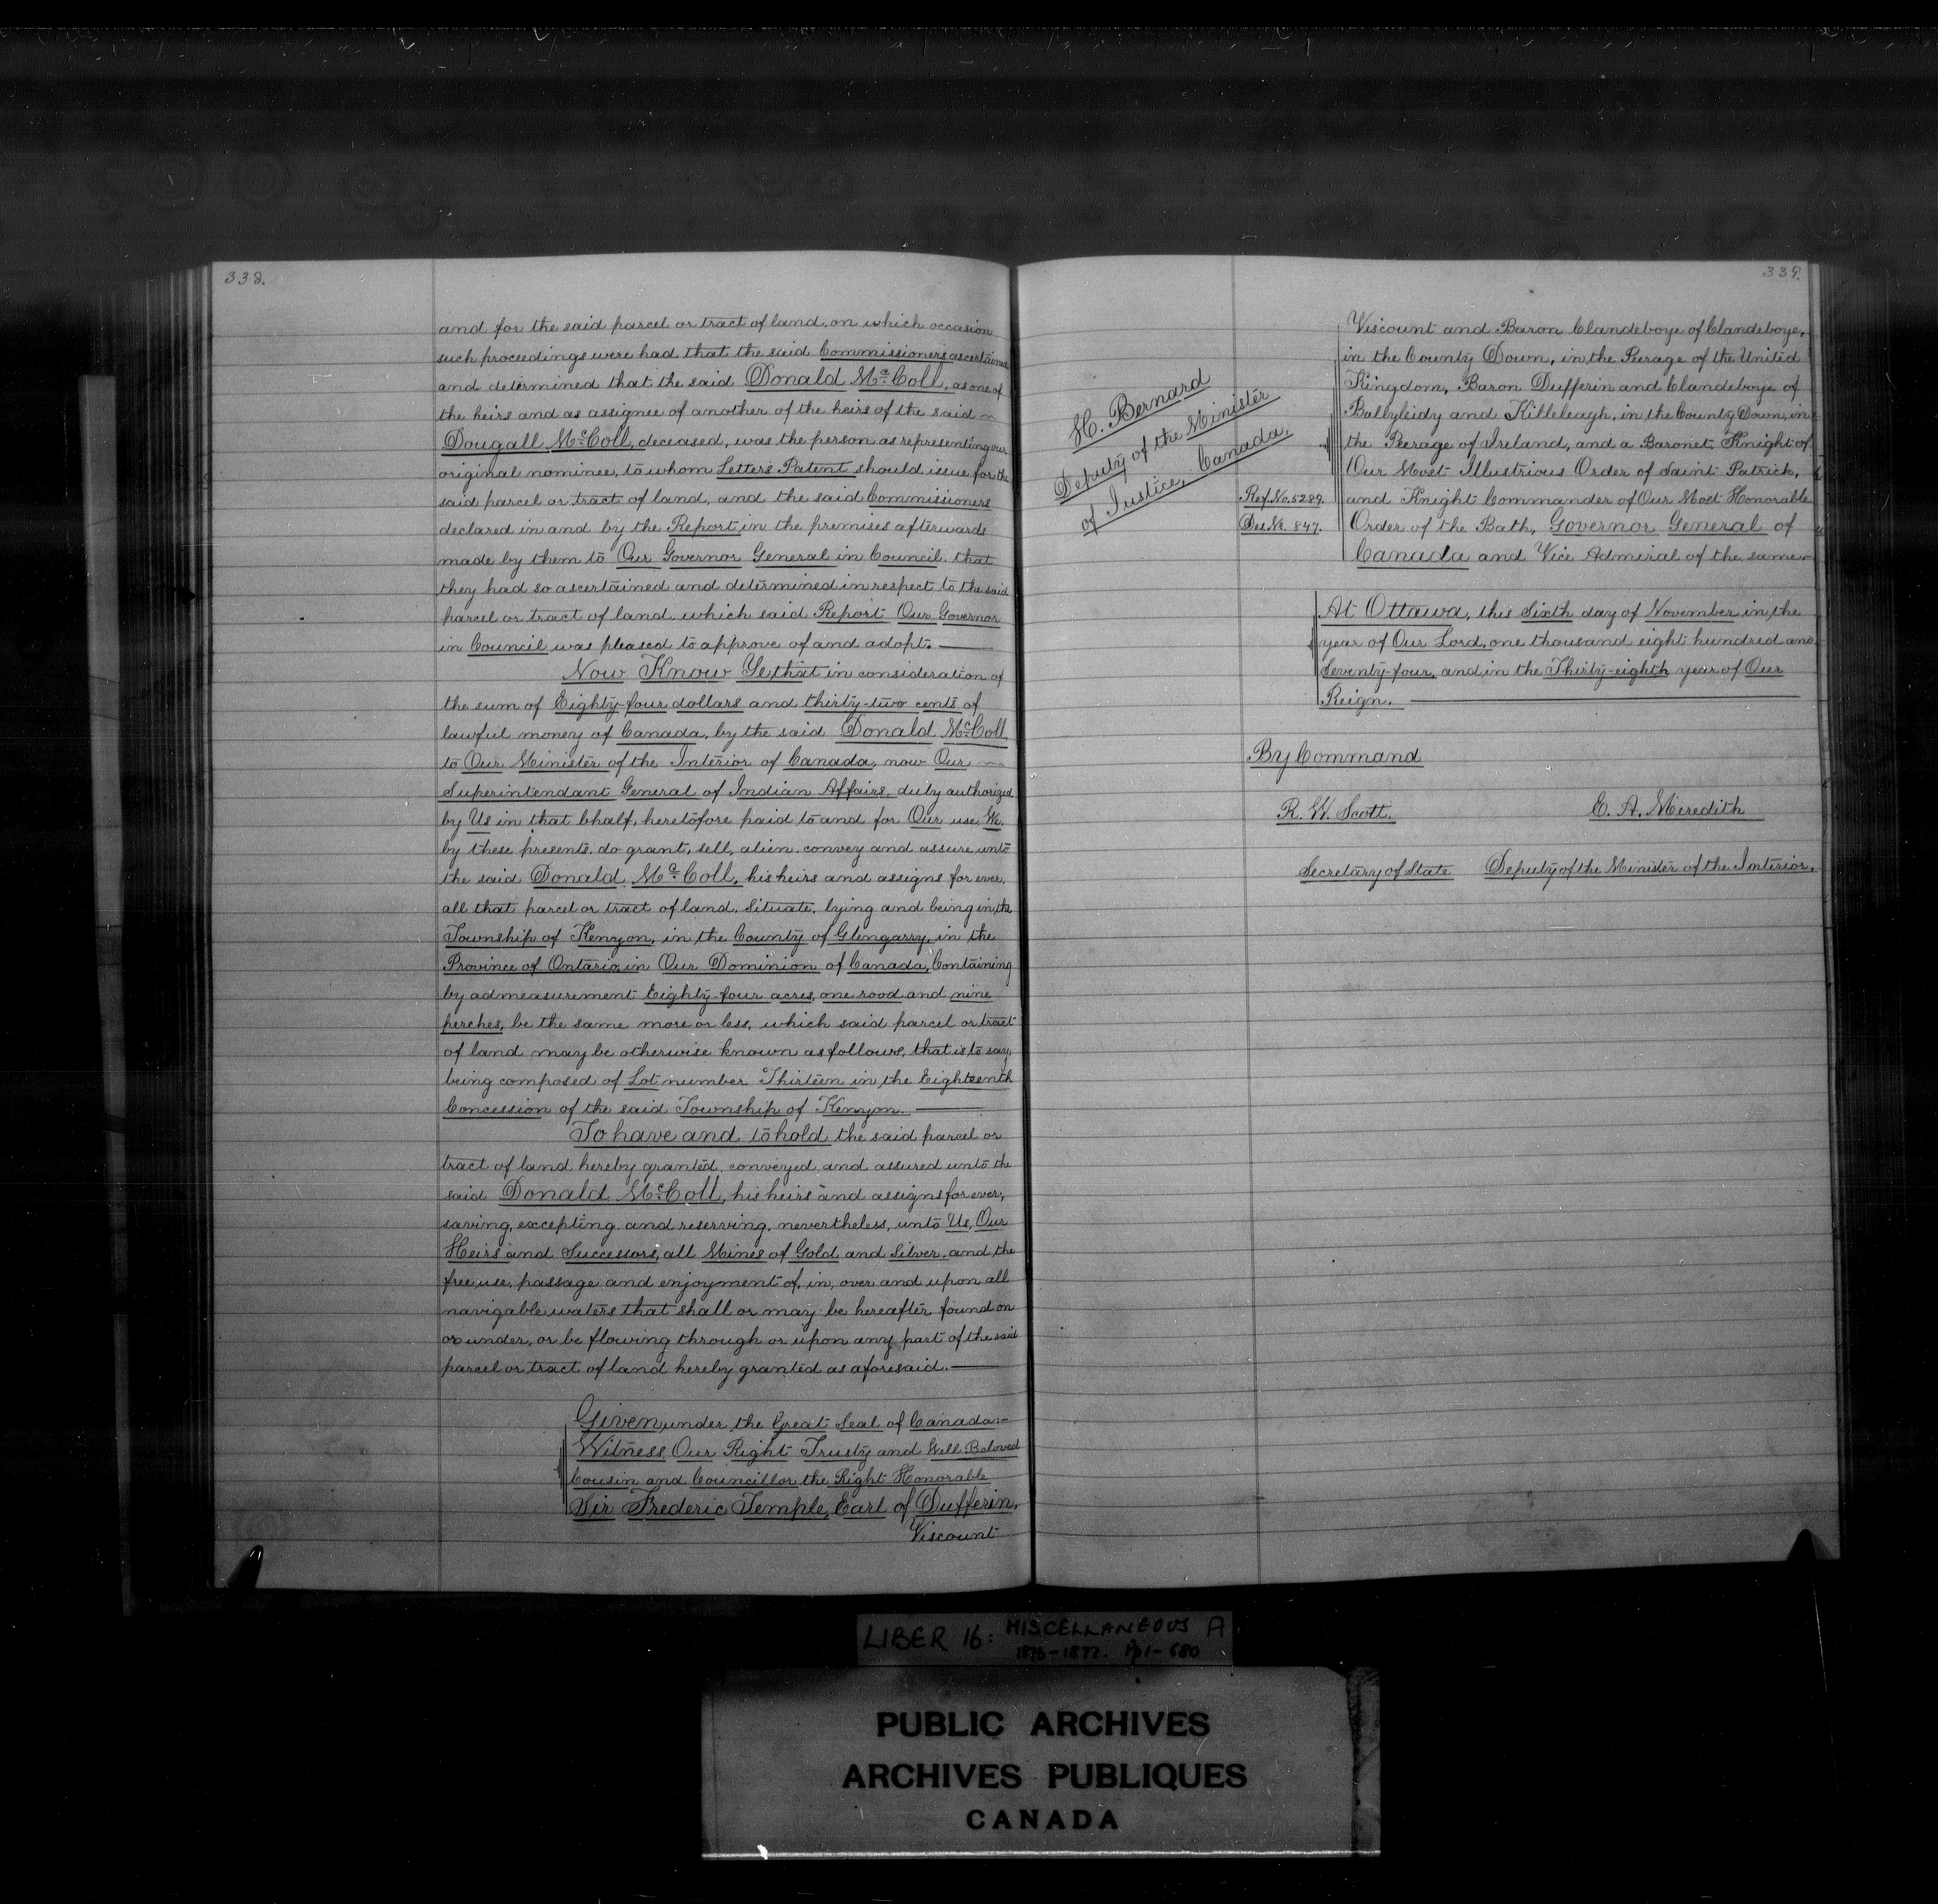 338.
and for the said parcel or tract of land, on which occasion
such proceedings were had that the said Commissioners ascertained
and determined that the said Donald Mc.Coll, as one of
the heirs and as assignee of another of the heirs of the said
Dougall Mc.Coll, deceased, was the person as representing our
original nominee, to whom Letters Patent should issue for the
said parcel or tract of land, and the said Commissioners
declared in and by the Report in the premises afterwards
made by them to Our Governor General in Council, that
they had so ascertained and determined in respect to the said
parcel or tract of land, which said Report Our Governor
in Council was pleased to approve of and adopt.
Now Know Ye, that in consideration of
the sum of Eighty-four dollars and thirty-two cents of
lawful money of Canada, by the said Donald Mc.Coll,
to Our Minister of the Interior of Canada, now Our
Superintendant General of Indian Affairs, duly authorized
by Us in that behalf, heretofore paid to and for Our use, We,
by these presents, do grant, sell, alien, convey and assure unto
the said Donald Mc.Coll, his heirs and assigns for ever,
all that parcel or tract of land, situate, lying and being in the
Township of Kenyon, in the County of Glengarry, in the
Province of Ontario, in Our Dominion of Canada, Containing
by admeasurement Eighty-four acres, one rood and nine
perches, be the same more or less, which said parcel or tract
of land may be otherwise known as follows, that is to say,
being composed of Lot number Thirteen in the Eighteenth
Concession of the said Township of Kenyon.
To have and to hold the said parcel or
tract of land hereby granted, conveyed and assured unto the
said Donald Mc.Coll, his heirs and assigns for ever,
saving, excepting and reserving, nevertheless, unto Us, Our
Heirs and Successors, all Mines of Gold and Silver, and the
free use, passage and enjoyment of, in, over and upon all
navigable waters that shall or may be hereafter found on
or under, or be flowing through or upon any part of the said
parcel or tract of land hereby granted as aforesaid.
Given under the Great Seal of Canada:-
Witness, Our Right Trusty and Well Beloved
Cousin and Councillor the Right Honorable
Sir Frederic Temple, Earl of Dufferin,
Viscount
339.
Viscount and Baron Clandeboye of Clandeboye,
in the County Down, in the Peerage of the United
Kingdom, Baron Dufferin and Clandeboye of
Ballyleidy and Killeleagh, in the County Down, in
the Peerage of Ireland, and a Baronet, Knight of
Our Most Illustrious Order of Saint Patrick,
and Knight Commander of Our Most Honorable
Order of the Bath, Governor General of
Canada and Vice Admiral of the same
H. Bernard
Deputy of the Minister
of Justice, Canada.
Ref. No. 5289.
Des. No. 847.
At Ottawa, this Sixth day of November in the
year of Our Lord, one thousand eight hundred and
Seventy-four, and in the Thirty-eighth year of Our
Reign.
By Command
R. W. Scott. E. A. Meredith
Secretary of State Deputy of the Minister of the Interior.
LIBER 16: MISCELLANEOUS A
1875-1877. Pp 1-680
PUBLIC ARCHIVES
ARCHIVES PUBLIQUES
CANADA